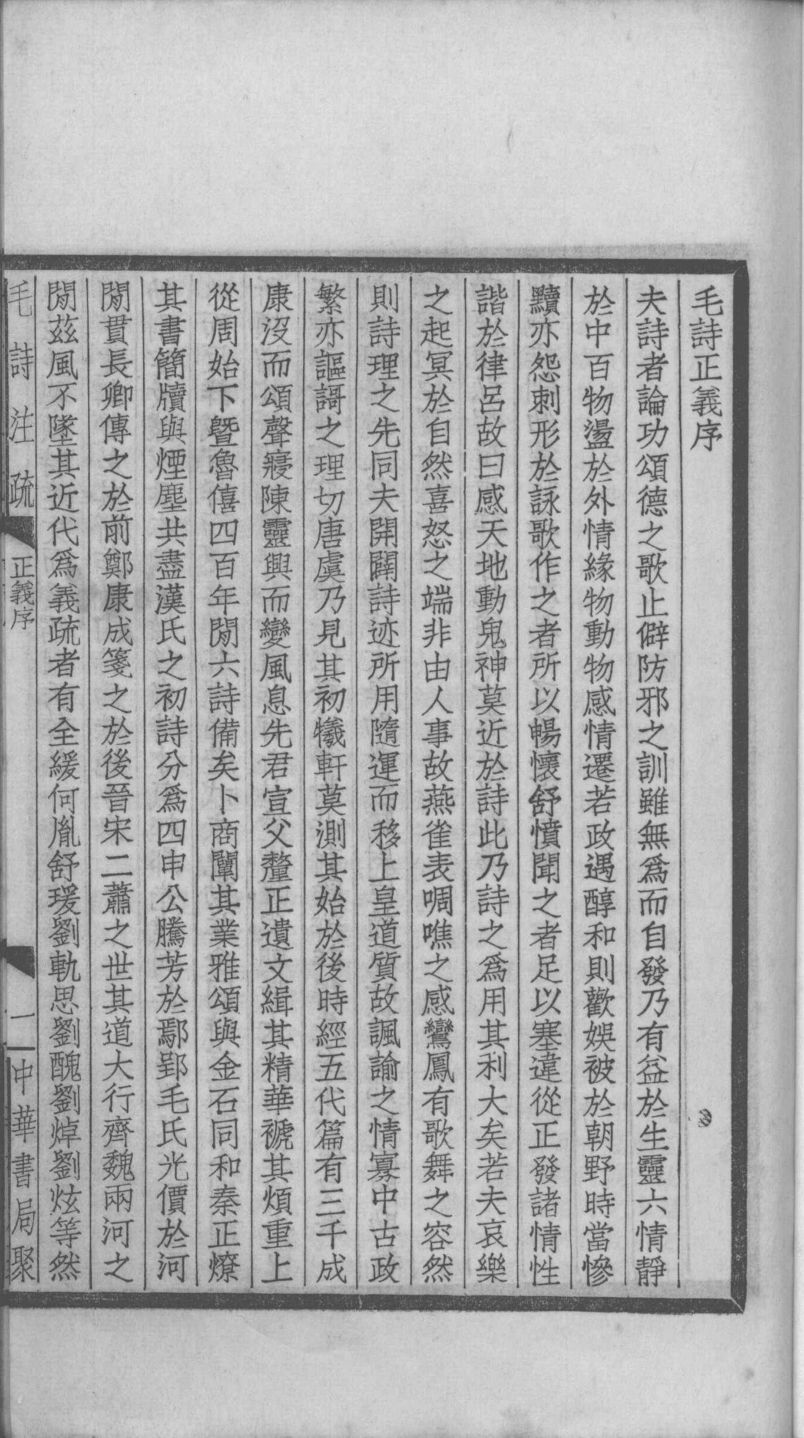 毛詩正義序
夫詩者論功頌德之歌止僻防邪之訓雖無爲而自發乃有益於生靈六情靜
於中百物盪於外情緣物動物感情遷若政遇醇和則歡娛被於朝野時當慘
黷亦怨刺形於詠歌作之者所以暢懷舒憤聞之者足以塞違從正發諸情性
諧於律呂故曰感天地動鬼神莫近於詩此乃詩之爲用其利大矣若夫哀樂
之起冥於自然喜怒之端非由人事故燕雀表啁噍之感鸞鳳有歌舞之容然
則詩理之先同夫開闢詩迹所用隨運而移上皇道質故諷諭之情寡中古政
繁亦謳謌之理切唐虞乃見其初犧軒莫測其始於後時經五代篇有三千成
康沒而頌聲寢陳靈興而變風息先君宣父釐正遺文緝其精華褫其煩重上
從周始下暨魯僖四百年閒六詩備矣卜商闡其業雅頌與金石同和秦正燎
其書簡牘與煙塵共盡漢氏之初詩分爲四申公騰芳於鄢郢毛氏光價於河
閒貫長卿傳之於前鄭康成箋之於後晉宋二蕭之世其道大行齊魏兩河之
閒茲風不墜其近代爲義疏者有全緩何胤舒瑗劉軌思劉醜劉焯劉炫等然
毛詩注疏 正義序 一 中華書局聚